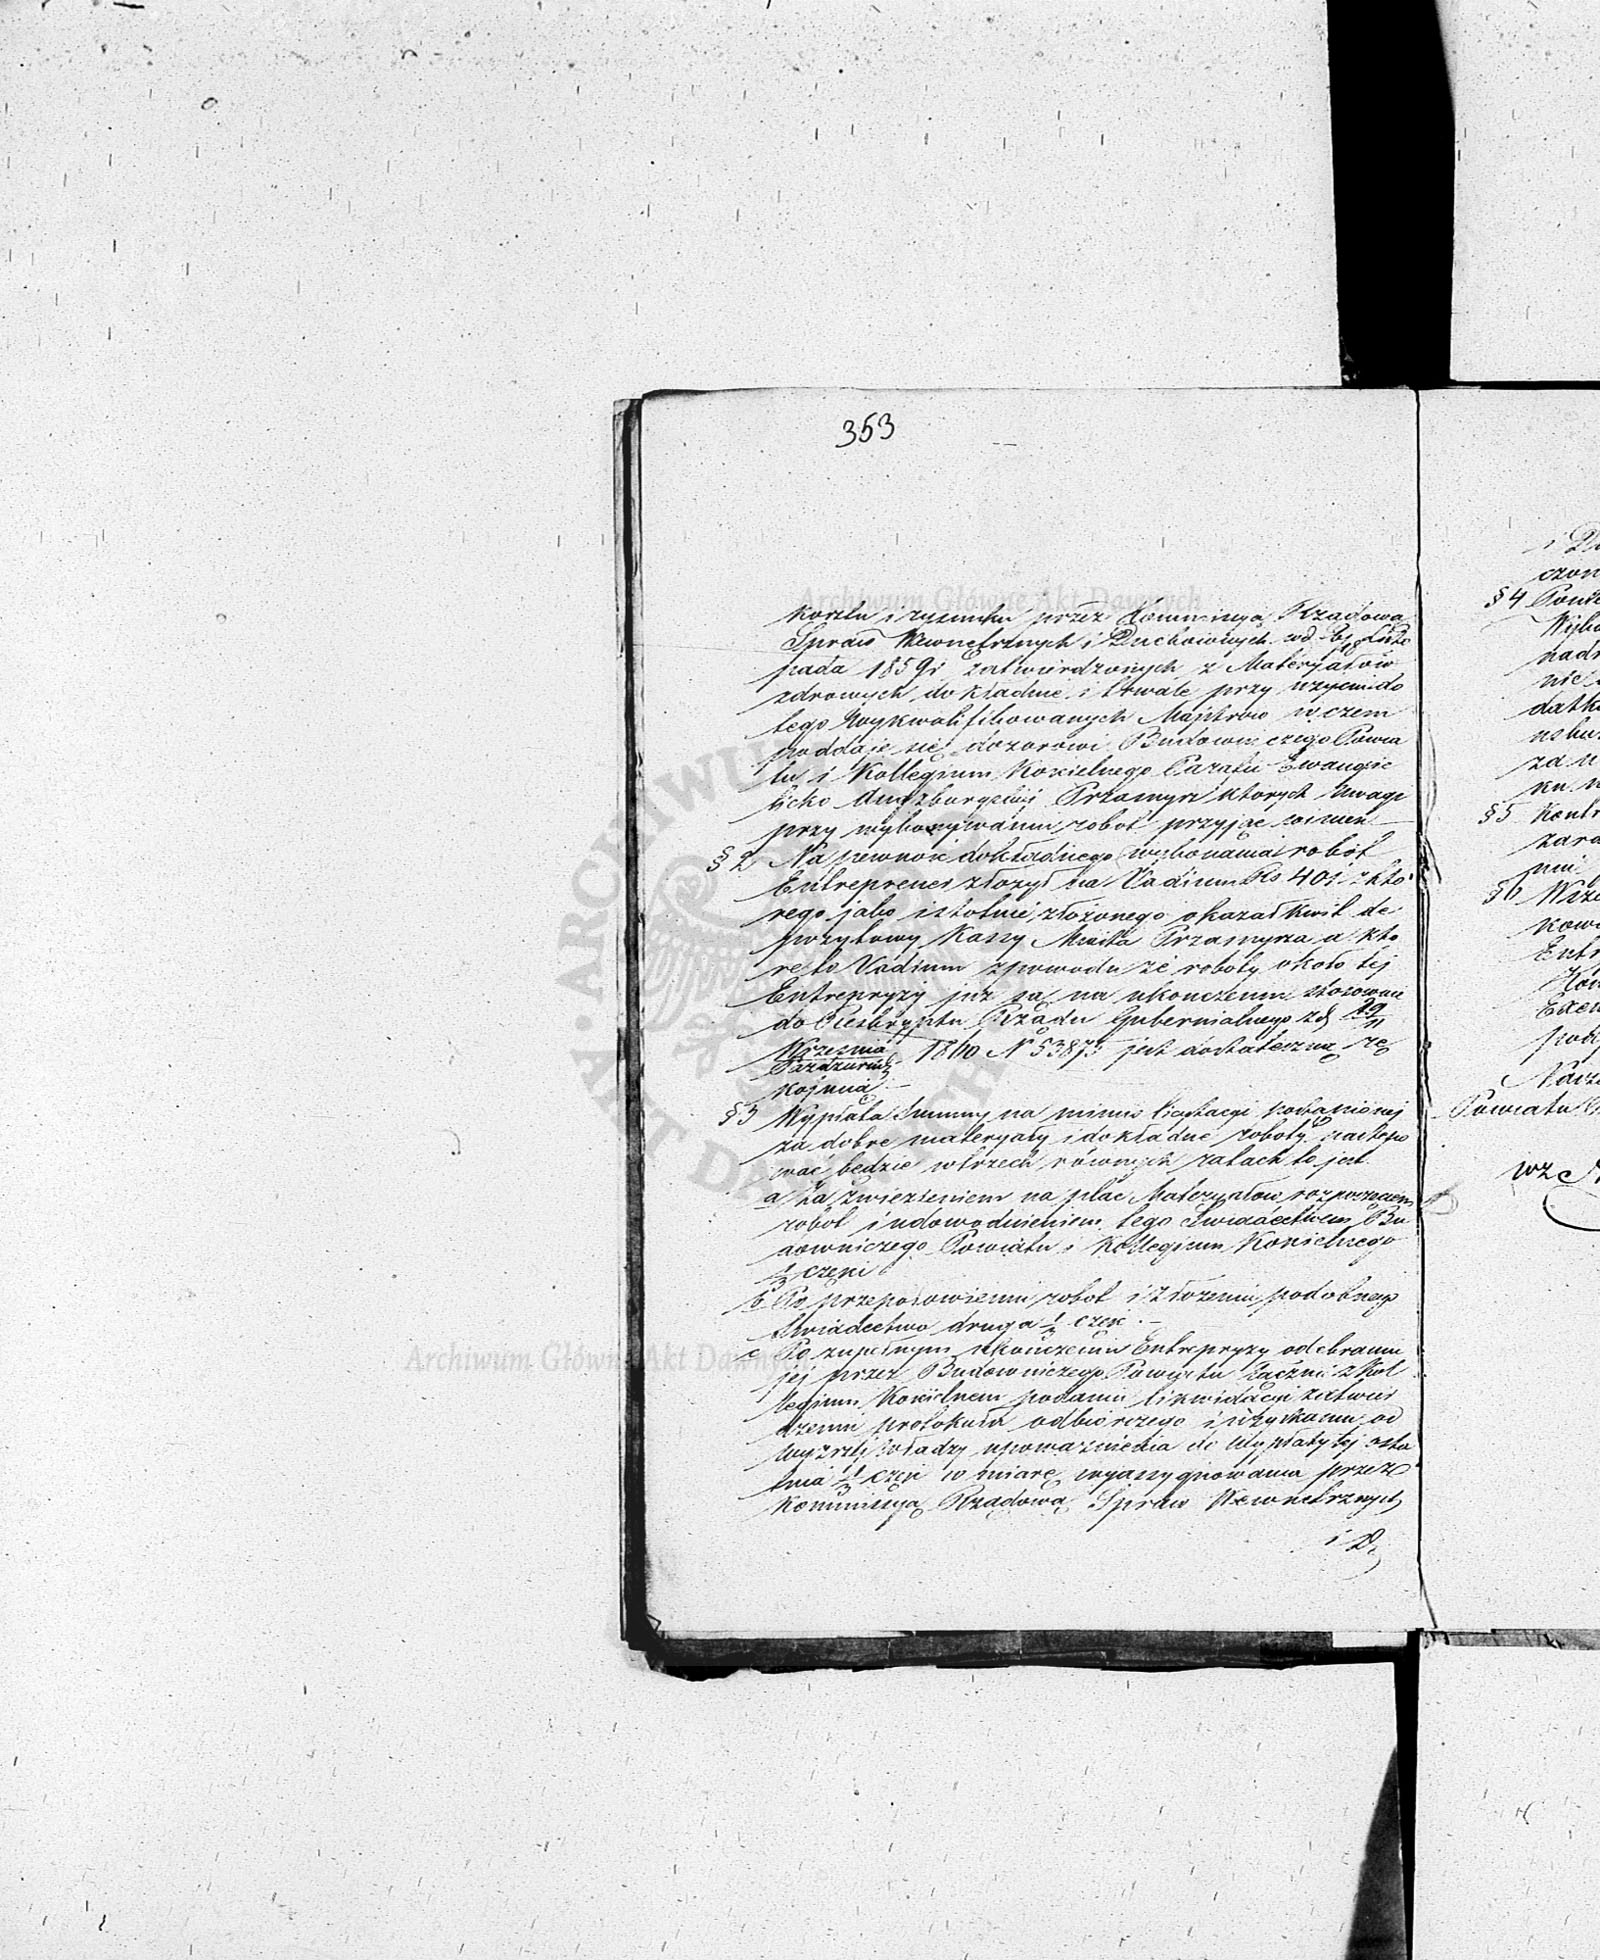 353
Archiwum Główne Akt Dawnych
kosztu i rysunku przez Kommissyą Rządową
Spraw Wewnetrznych i Duchownych wd 6/18 Listo
pada 1859 r zatwierdzonych z Materyałów
zdrowych dokładnie i trwale przy uzyciu do
tego Wykwalifikowanych Majstrów w czem
poddaje się dozorowi Budowniczego Powia
tu i Kollegium Koscielnego Parafii Ewangie
licko Augzburgskiej Przasnysz których Uwagi
przy wykonywaniu robot przyjąc winien
§ 2 Na pewność dokładnego wykonania robót
Entreprener złozył na Vadium Rs 401 z któ
rego jako istotnie złożonego okazał kwit de
pozytowy Kassy Miasta Przasnysza a któ
re to Vadium zpowodu że roboty około tej
Entrepryzy juz są na ukonczeniu stosownie
do Reskryptu Rządu Gubernialnego z d 29/11
Wrzesnia/Pazdziernik 1860 N 53875 jest dostateczną rę
kojmią
§ 3 Wypłata Summy na minus licytacyi postąpionej
za dobre materyały i dokładne roboty nastepo
wać będzie w trzech równych ratach to jest
a Za zwiezieniem na plac Materyałów rozpoczęciem
robot i udowodnieniem tego Swiadectwem Bu
downiczego Powiatu i Kollegium Koscielnego
1/3 częsci
b Po przepołowieniu robot i złożeniu podobnego
Swiadectwa druga 1/3 częsc
c Po zupełnym ukończeniu Entrepryzy odebraniu
jej przez Budowniczego Powiatu łącznie z Kol
legium Koscielnem podaniu likwidacyi zatwier
dzeniu protokułu odbiorczego i uzyskaniu od
Wyzszej władzy upoważnienia do Wypłaty tej osta
tnia 1/3 częsc w miarę wyassygnowania przez
Kommissyą Rządową Spraw Wewnetrznych
i D
Archiwum Główne Akt Dawnych
ARCHIWUM
AKT DAWNYCH
§ 4
§ 5
§ 6
Powiatu
wz